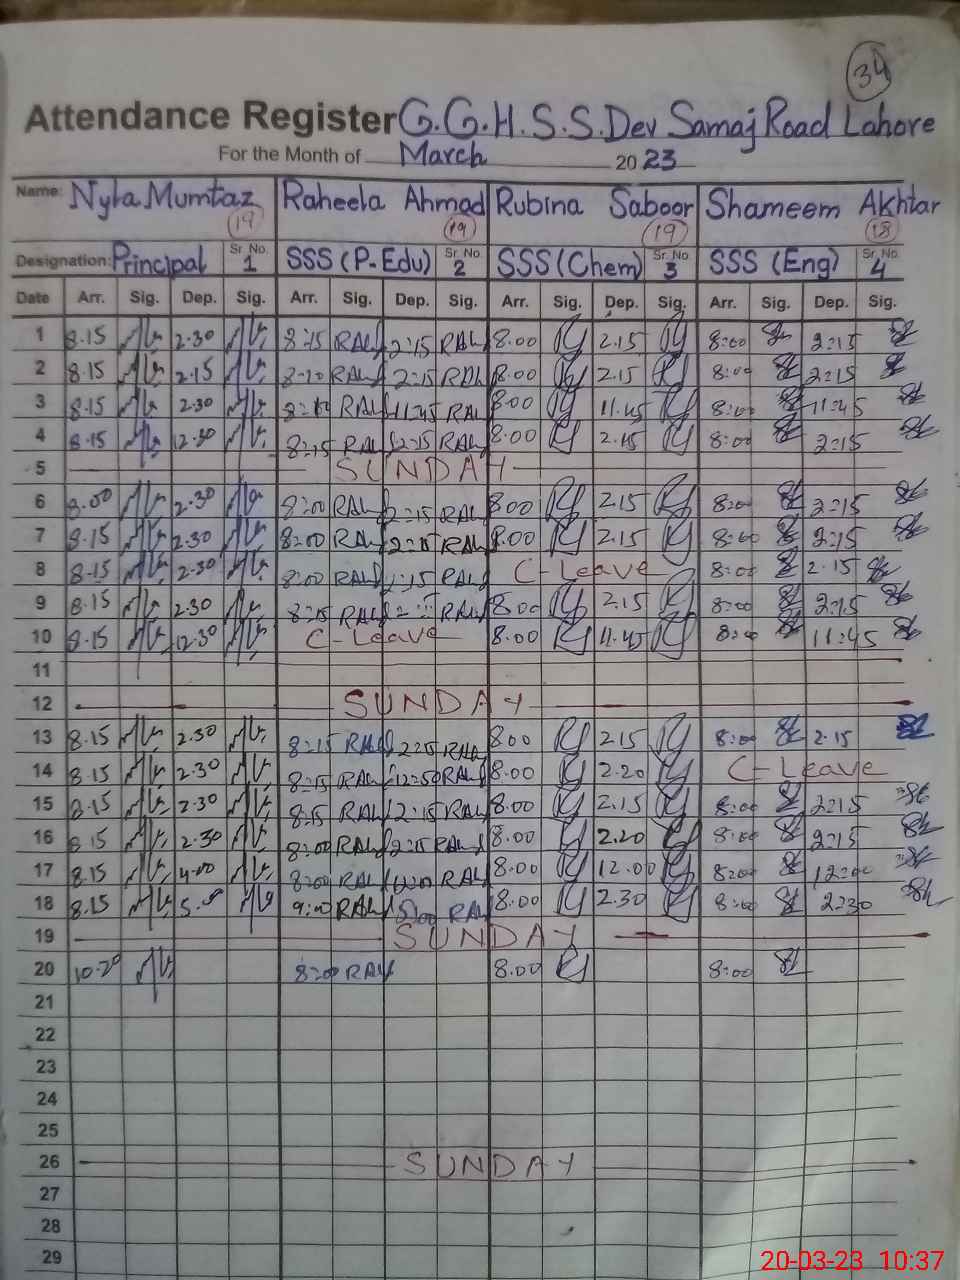 34
Attendance Register G.G.H.S.S. Dev Samaj Road Lahore
For the Month of March 2023
Name: Nyla Mumtaz Raheela Ahmad Rubina Saboor Shameem Akhtar
19 19 19 18
Designation: Principal Sr. No. 1 SSS (P-Edu) Sr. No. 2 SSS (Chem) Sr. No. 3 SSS (Eng) Sr. No. 4
Date Arr. Sig. Dep. Sig. Arr. Sig. Dep. Sig. Arr. Sig. Dep. Sig. Arr. Sig. Dep. Sig.
1 8.15 2.30 8:15 2:15 8.00 2.15 8:00 2:15
2 8.15 2.15 2:15 8.00 2.15 8:00 2:15
3 8.15 2.30 11:45 8.00 11.45 8:00 11:45
4 8.15 12.30 8:15 2:15 8.00 2.15 8:00 2:15
5 SUNDAY
6 8.00 2.30 8:00 2:15 8.00 2.15 8:00 2:15
7 8.15 2.30 8:00 2:15 8.00 2.15 8:00 2:15
8 8.15 2.30 8:00 2:15 C-Leave 8:00 2.15
9 8.15 2.30 8:15 8.00 2.15 8:00 2:15
10 8.15 12.30 C-Leave 8.00 11.45 8:00 11:45
11
12 SUNDAY
13 8.15 2.30 8:15 2:15 8.00 2.15 8:00 2.15
14 8.15 2.30 8:15 12:50 8.00 2.20 C-Leave
15 8.15 2.30 8:15 2:15 8.00 2.15 8:00 2:15
16 8.15 2.30 8:00 2:15 8.00 2.20 8:00 2:15
17 8.15 4.00 8:00 8.00 12.00 8:00 12:00
18 8.15 5.00 9:00 5:00 8.00 2.30 8:00 2:30
19 SUNDAY
20 10.20 8:00 8.00 8:00
21
22
23
24
25
26 SUNDAY
27
28
29
20-03-23 10:37